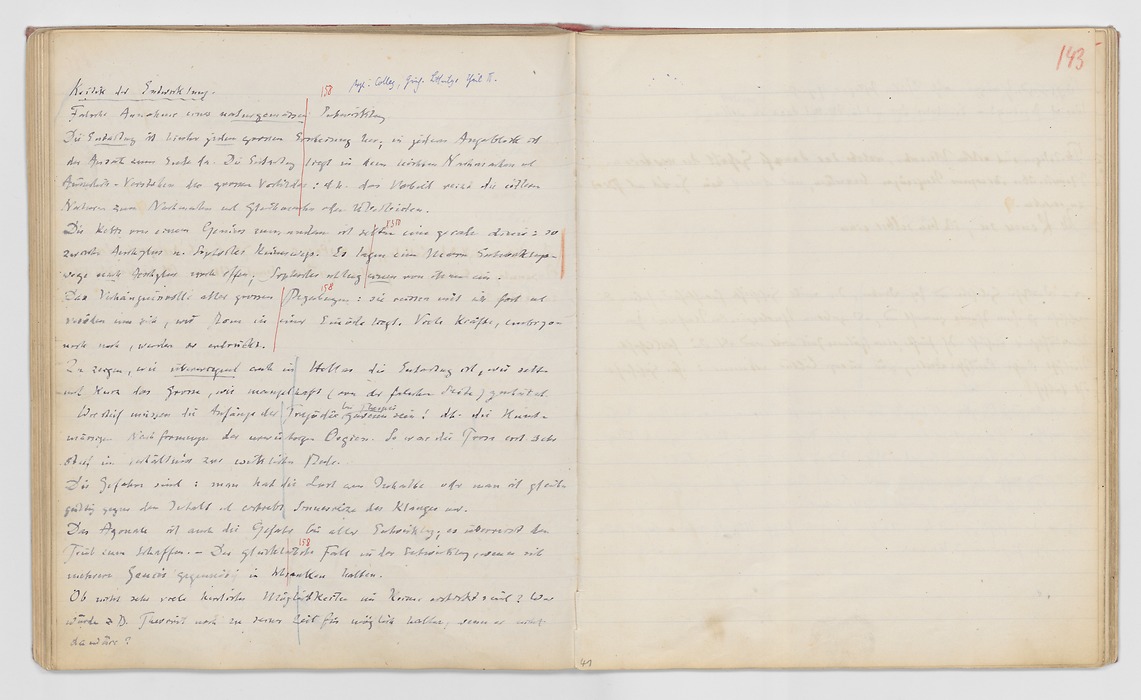 Kritik der Entwicklung.
Falsche Annahme einer naturgemässen Entwicklung
158
Die Entartung ist hinter jeder grossen Erscheinung her; in jedem Augenblick ist
der Ansatz zum Ende da. Die Entartung liegt in dem leichten Nachmachen u
Äusserlich-Verstehen der grossen Vorbilder: d.h. das Vorbild reizt die eitleren
Naturen zum Nachmachen und Gleichmachen oder Überbieten.
Die Kette von einem Genius zum andern ist selten eine gerade Linie: so
zwischen Aeschylus u. Sophocles keineswegs. Es lagen eine Menge Entwicklungs-
wege nach Aeschylus noch offen; Sophocles schlug einen von ihnen ein.
Das Verhängnissvolle aller grossen Begabungen: sie reissen mit sich fort und
158
veröden um sich, wie Rom in einer Einöde liegt. Viele Kräfte, embryo-
nisch noch, werden so erdrückt.
Zu zeigen, wie überwiegend auch in Hellas die Entartung ist, wie selten
und kurz das Grosse, wie mangelhaft (von der falschen Seite) geschätzt.
Wie steif müssen die Anfänge der Tragödie bei Thespis gewesen sein! dh. die kunst-
mässigen Nachformungen der urwüchsigen Orgien. So war die Prosa erst sehr
steif im Verhältniss zur wirklichen Rede.
Die Gefahren sind: man hat die Lust am Inhalte oder man ist gleich-
gültig gegen den Inhalt und erstrebt Sinnesreize des Klanges usw.
Das Agonale ist auch die Gefahr bei aller Entwicklung; es überreizt den
Trieb zum Schaffen. – Der glücklichste Fall in der Entwicklung, wenn sich
158
mehrere Genies gegenseitig in Schranken halten.
Ob nicht sehr viele herrliche Möglichkeiten im Keime erstickt sind? Wer
würde z.B. Theocrit noch zu seiner Zeit für möglich halten, wenn er nicht
da wäre?
143
41